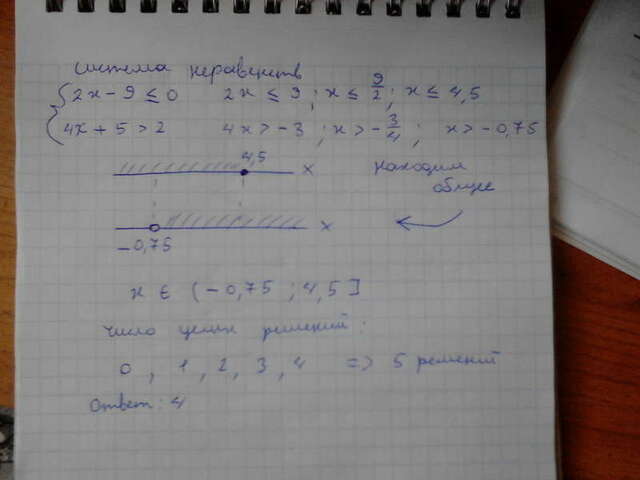 система неравенств
2x - 9 ≤ 0 2x ≤ 9 ; x ≤ 9/2 ; x ≤ 4,5
4x + 5 > 2 4x > -3 ; x > -3/4 ; x > -0,75
4,5 x
находим общее
-0,75 x
x ∈ (-0,75 ; 4,5]
число целых решений :
0 , 1 , 2 , 3 , 4 => 5 решений
Ответ : 4